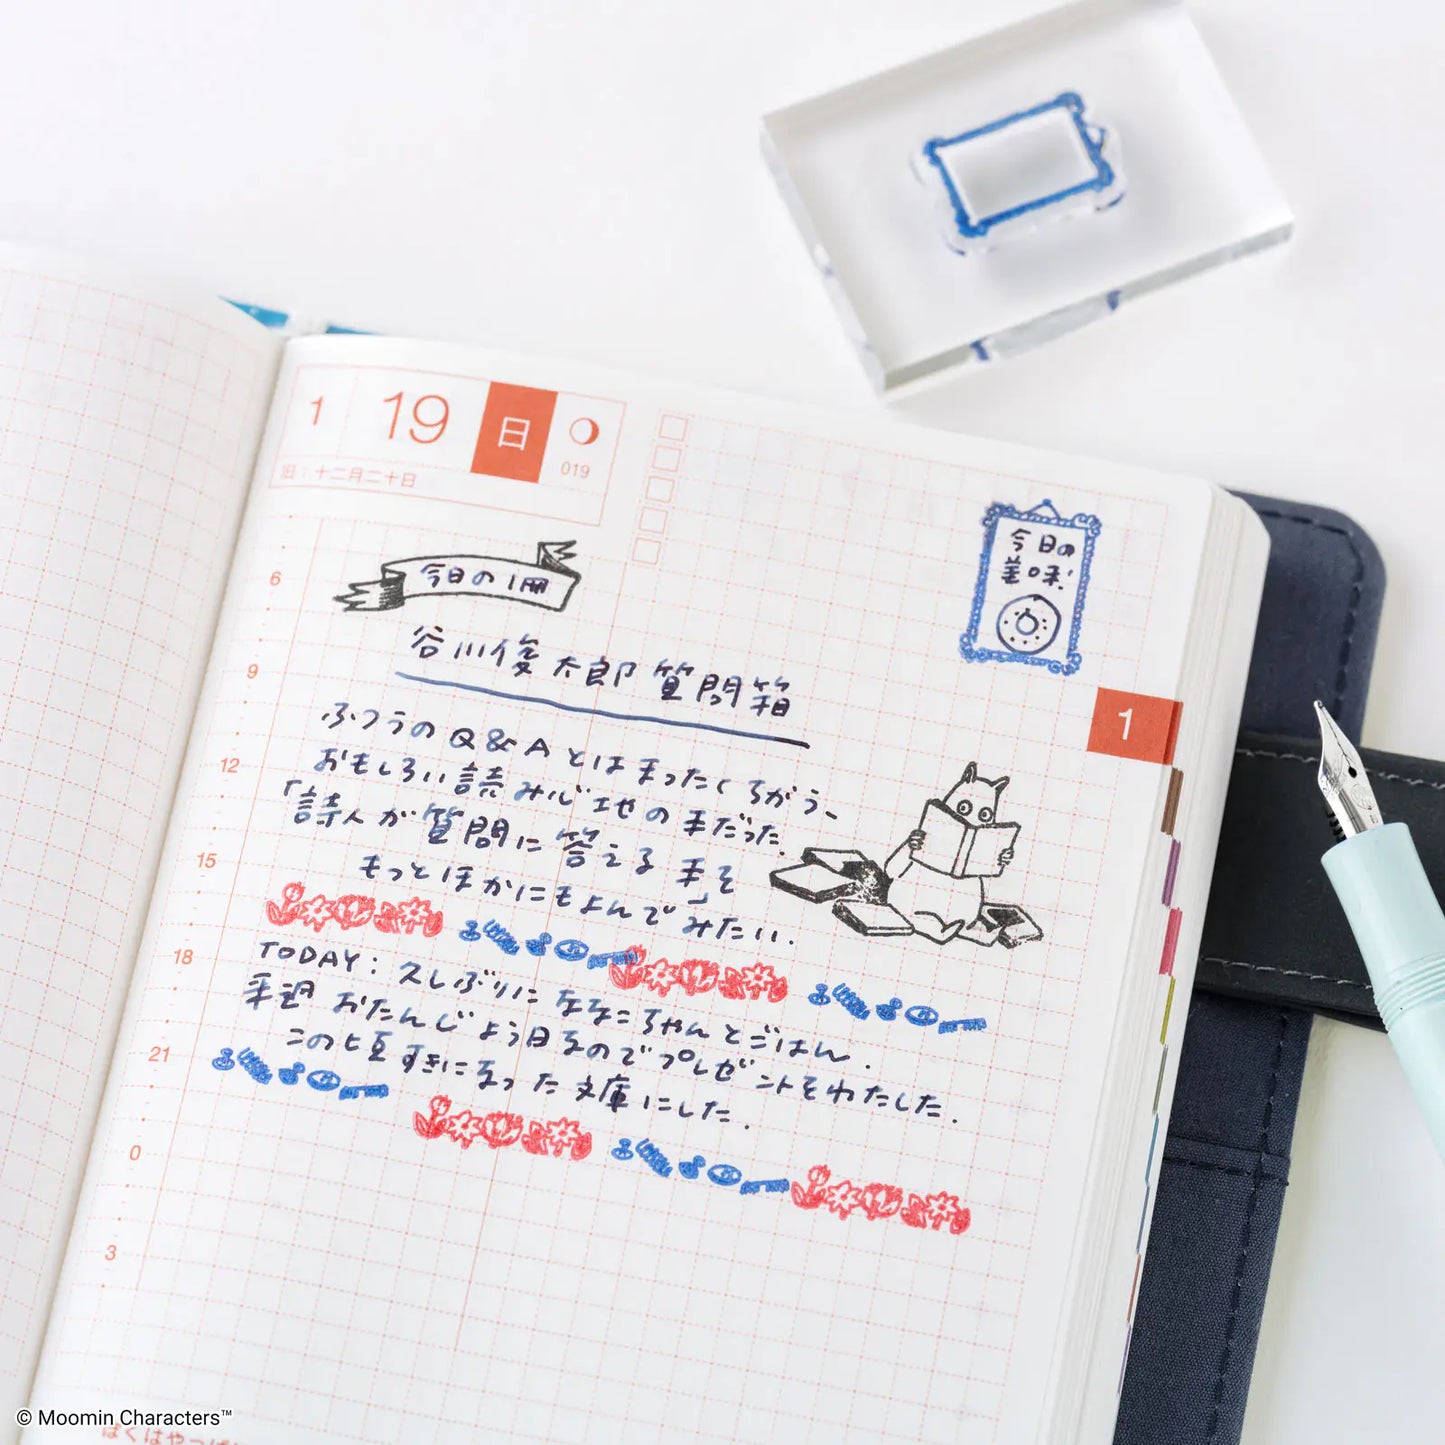 1 19 日
019
旧：十二月二十日
6
今日の1冊
今日の
美味!
谷川俊太郎質問箱
9
ふつうのQ&Aとはまったくちがう、
12
おもしろい読み心地の本だった。
「詩人が質問に答える本」を
15
もっとほかにもよんでみたい.
18
TODAY: 久しぶりにななこちゃんとごはん.
来週おたんじょう日なのでプレゼントをわたした.
21
この頃すきになった文庫にした.
0
3
1
© Moomin Characters™